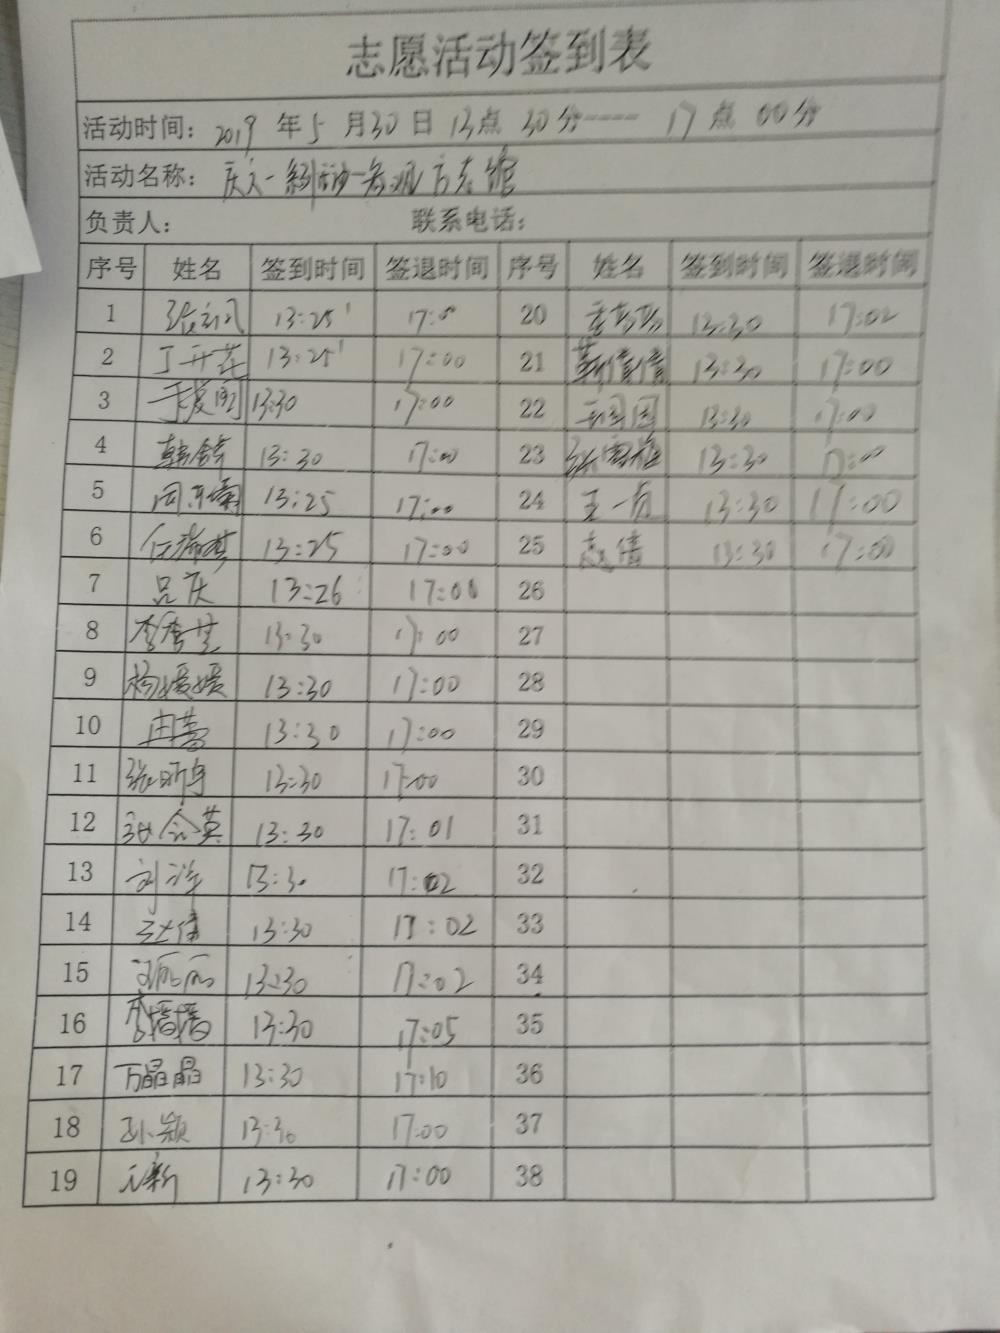 志愿活动签到表
活动时间: 2019 年 5 月 30 日 13 点 30 分---- 17 点 00 分
活动名称: 庆六一 参观方志馆
负责人: 联系电话:
序号 姓名 签到时间 签退时间 序号 姓名 签到时间 签退时间
1 13:25 17:0 20 李莎莎 13:30 17:02
2 丁开花 13:25 17:00 21 靳倩倩 13:30 17:00
3 13:30 17:00 22 王园园 13:30 17:00
4 韩 13:30 17:00 23 张雪 13:30 17:00
5 周 13:25 17:00 24 王一 13:30 17:00
6 任 13:25 17:00 25 倩 13:30 17:00
7 吕庆 13:26 17:00 26
8 李秀芝 13:30 17:00 27
9 杨媛媛 13:30 17:00 28
10 13:30 17:00 29
11 张昕宇 13:30 17:00 30
12 张会英 13:30 17:01 31
13 刘洋 13:30 17:02 32
14 13:30 17:02 33
15 丽丽 13:30 17:02 34
16 李 13:30 17:05 35
17 万晶晶 13:30 17:10 36
18 孙颖 13:30 17:00 37
19 新 13:30 17:00 38